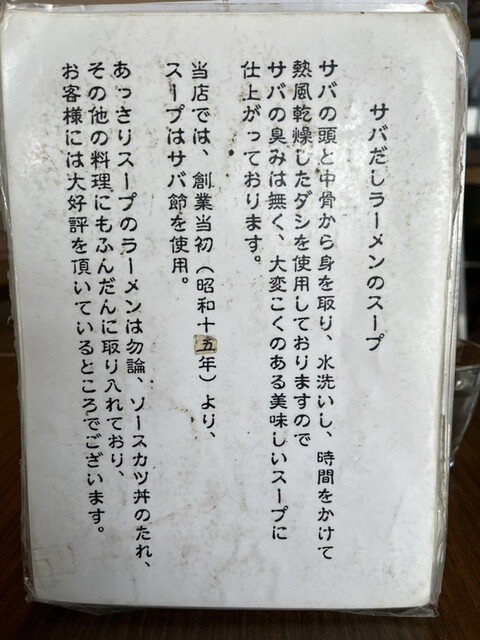 サバだしラーメンのスープ
サバの頭と中骨から身を取り、水洗いし、時間をかけて
熱風乾燥したダシを使用しておりますので
サバの臭みは無く、大変こくのある美味しいスープに
仕上がっております。
当店では、創業当初(昭和十五年)より、
スープはサバ節を使用。
あっさりスープのラーメンは勿論、ソースカツ丼のたれ、
その他の料理にもふんだんに取り入れており、
お客様には大好評を頂いているところでございます。